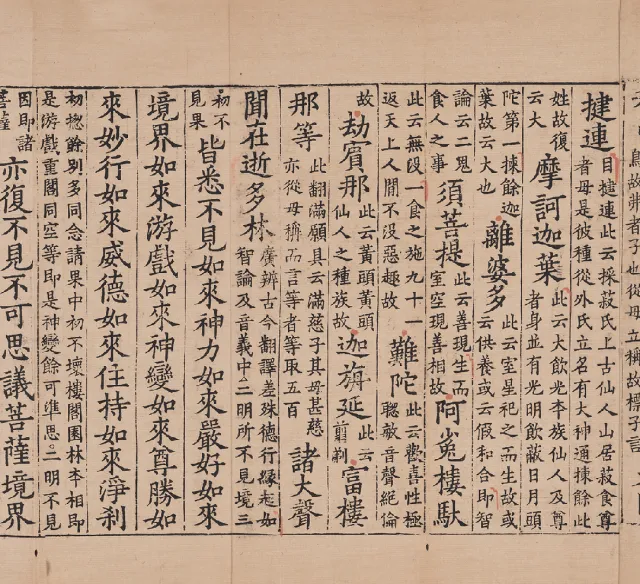 鳥故弗者子也從母立稱故標子言
揵連目揵連此云採菽氏上古仙人山居菽食尊者母是彼種從外氏立名有大神通揀餘此
姓故復云大摩訶迦葉此云大飲光本族仙人及尊者身並有光明飲蔽日月頭
陀第一揀餘迦葉故云大也離婆多此云室星祀之而生故或云供養或云假和合即智
論云二鬼食人之事須菩提此云善現生而室空現善相故阿㝹樓馱
此云無段一食之施九十一返天上人間不沒惡趣故難陀此云歡喜性極聰敏音聲絕倫
故劫賓那此云黃頭黃頭仙人之種族故迦旃延此云剪剃富樓
那等此翻滿願具云滿慈子其母甚慈亦從母稱而言等者等取五百諸大聲
聞在逝多林廣辨古今翻譯差殊德行緣起如智論及音義中二明所不見境三
初不見果皆悉不見如來神力如來嚴好如來
境界如來游戲如來神變如來尊勝如
來妙行如來威德如來住持如來淨剎
初揔餘別多同念請果中初不壞樓閣園林本相即是游戲重閣同空等即是神變餘可準思二明不見
因即諸菩薩亦復不見不可思議菩薩境界